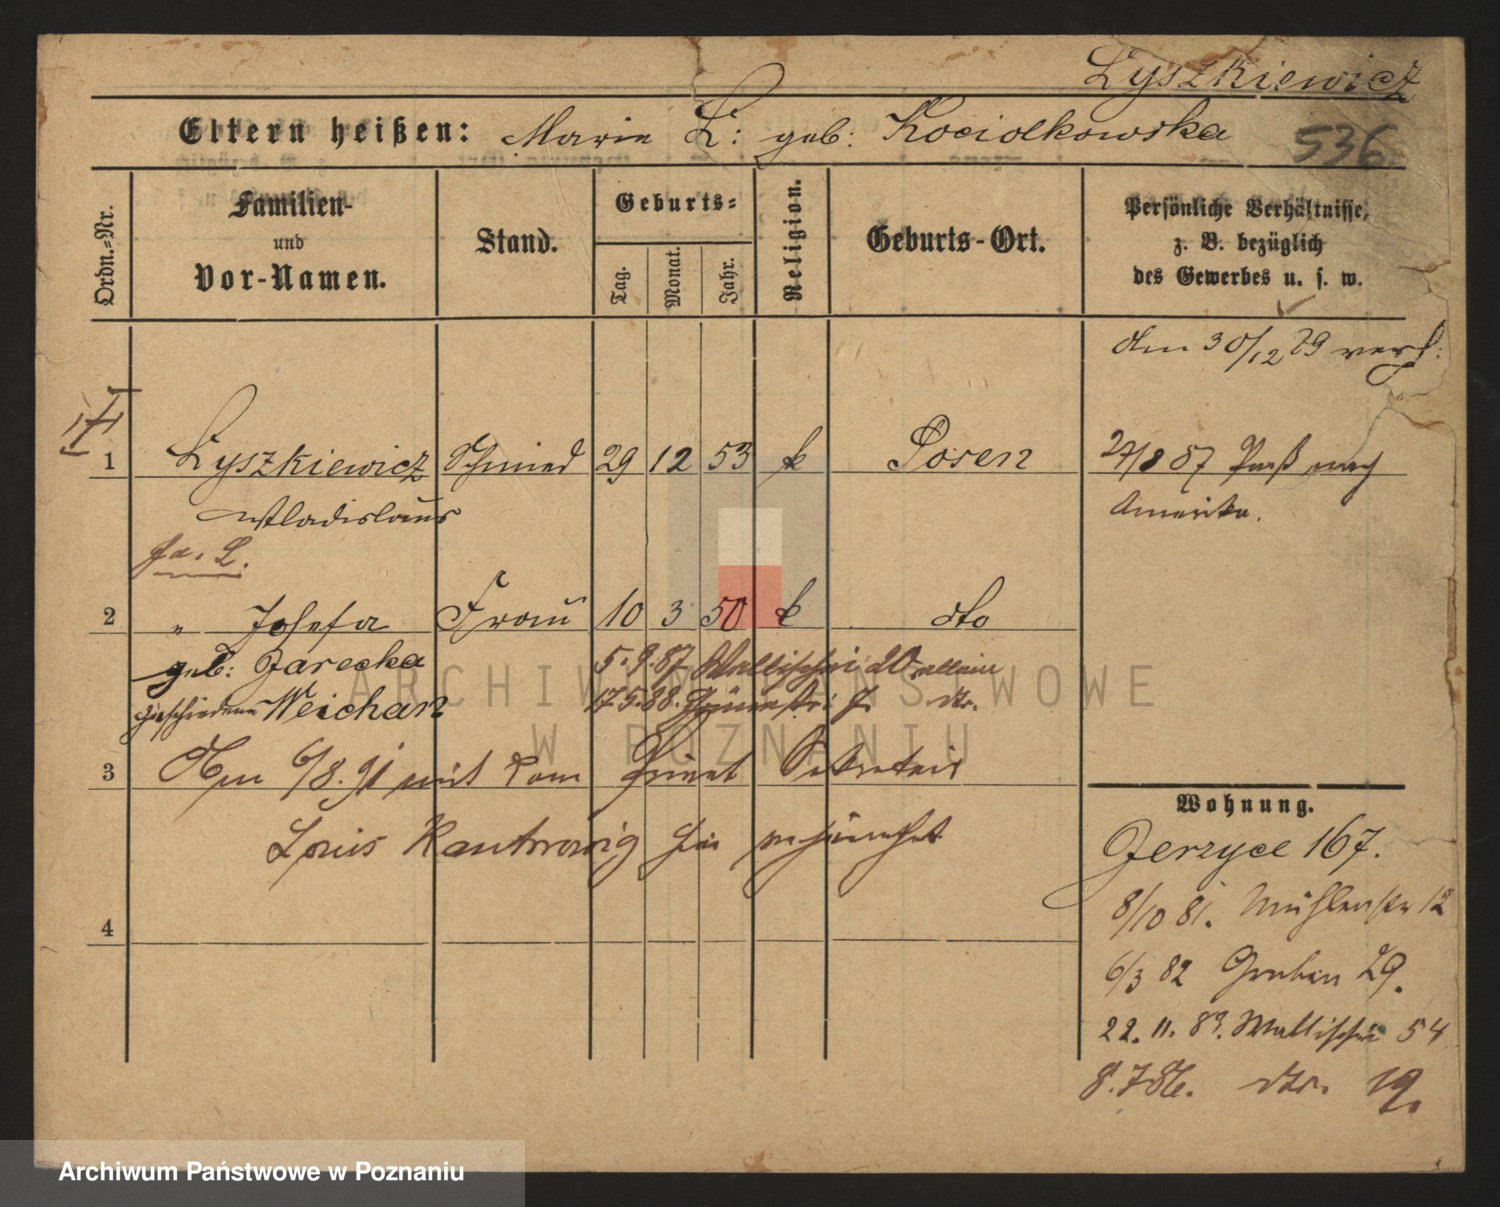 Lyszkiewicz
Eltern heißen: Marie L: geb: Kociolkowska 536
Ordn.=Nr.
Familien-
und
Vor-Namen.
Stand.
Geburts=
Tag.
Monat.
Jahr.
Religion.
Geburts-Ort.
Persönliche Verhältnisse,
z. B. bezüglich
des Gewerbes u. s. w.
den 30/12 79 verh:
1 Lyszkiewicz Schmied 29 12 53 k Posen
Wladislaus
24/8 87 Paß nach
Amerika.
2 " Josefa Frau 10 3 50 k dto
geb: Jarecka 5.9.87 Wallischei
geschiedene Weichan 17.5.88.
3 Am 6/8.91 mit dem Sekretair
Louis
4
Wohnung.
Jerzyce 167.
8/10 81. Mühlenstr 12
6/3 82 Graben 29.
22. 11. 83. Wallischei 54
8.7 86. dto. 19.
ARCHIWUM PAŃSTWOWE
W POZNANIU
Archiwum Państwowe w Poznaniu